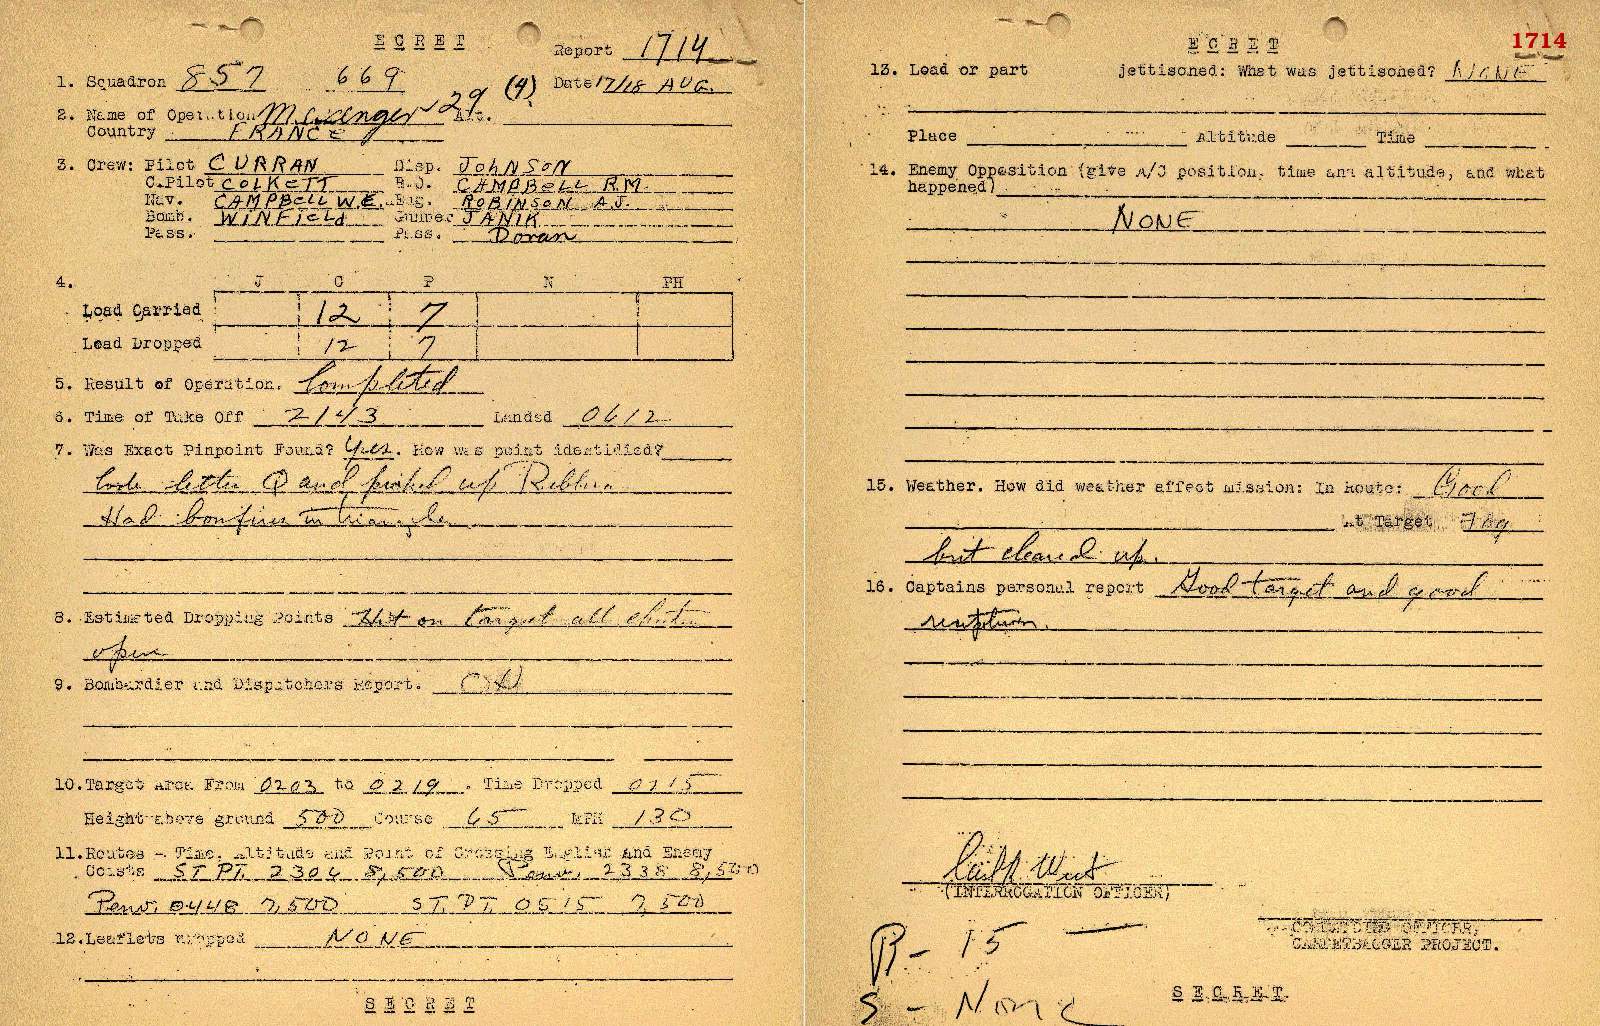 ECRET
Report 1714
1. Squadron 857 669 (4) Date 17/18 AUG.
2. Name of Operation 29 Alt.
Country FRANCE
3. Crew: Pilot CURRAN Disp. JOHNSON
C.Pilot COLKETT R.O. CAMPBELL R.M.
Nav. CAMPBELL W.E. Eng. ROBINSON A.J.
Bomb. WINFIELD Gunner JANIK
Pass. Pass. Doran
4. J C P N PH
Load Carried 12 7
Load Dropped 12 7
5. Result of Operation. Completed
6. Time of Take Off 2143 Landed 0612
7. Was Exact Pinpoint Found? Yes. How was point identidied?
Code letter Q and picked up Rebecca
Had bonfires in triangle
8. Estimated Dropping Points Hit on target all chutes
open
9. Bombardier and Dispatchers Report. OK
10. Target Area From 0203 to 0219. Time Dropped 0215
Height above ground 500 Course 65 MPH 130
11. Routes - Time, Altitude and Point of Crossing English And Enemy
Coasts ST PT. 2304 8,500 Penv. 2338 8,500
Penv. 0448 7,500 ST. PT. 0515 7,500
12. Leaflets dropped NONE
SECRET
ECRET
1714
13. Load or part jettisoned: What was jettisoned? NONE
Place Altitude Time
14. Enemy Opposition (give A/C position, time and altitude, and what
happened)
NONE
15. Weather. How did weather affect mission: In Route: Good
At Target Fog
but cleared up.
16. Captains personal report Good target and good
reception.
(INTERROGATION OFFICER)
COMMANDING OFFICER,
CARPETBAGGER PROJECT.
R - 15
S - None
SECRET